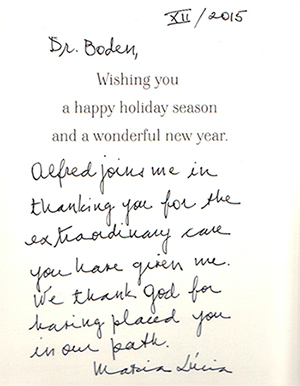 XII/2015
Dr. Boden,
Wishing you
a happy holiday season
and a wonderful new year.
Alfred joins me in
thanking you for the
extraordinary care
you have given me.
We thank God for
having placed you
in our path.
Maria Lúcia